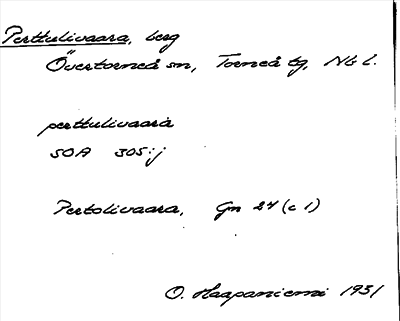 Perttulivaara, berg
Övertorneå sn, Torneå tg, Nb l.
perttulivaara
SOA 305:j
Pertolivaara, Gn 24 (c 1)
O. Haapaniemi 1931